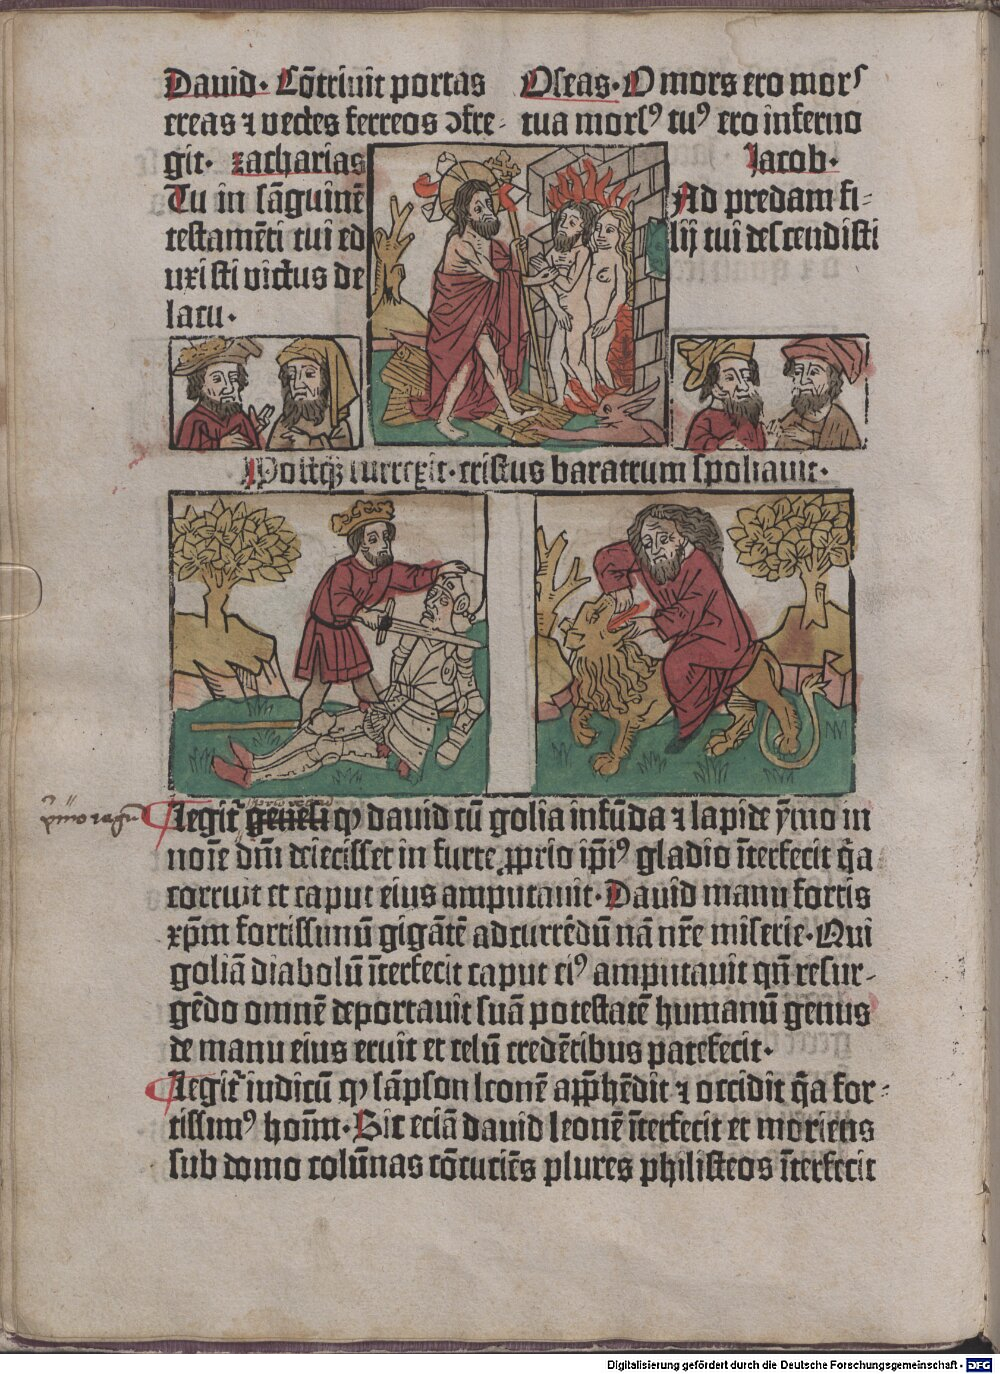 Dauid. Cōtriuit portas
ereas ⁊ vectes ferreos ɔfre-
git. zacharias
Tu in sāguinē
testamēti tui ed
uxisti victus de
lacu.
Oseas. O mors ero mors
tua morsꝰ tuꝰ ero inferno
Jacob.
Ad predam fi-
lij tui descendisti
Postq̄ surrexit. cristus baratrum spoliauit.
p̄mo regū
Legit᷑ genesi ꝙ dauid cū golia in fūda ⁊ lapide ymo in
noīe dn̄i deiecisset in furte ꝓprio ip̄iꝰ gladio īterfecit q̄a
corruit et caput eius amputauit. Dauid manu fortis
xp̄m fortissimū gigātē ad currēdū nā nr̄e miserie. Qui
goliā diabolū īterfecit caput eiꝰ amputauit qn̄ resur-
gēdo omnē deportauit suā potestatē humanū genus
de manu eius eruit et celū credētibus patefecit.
Legit᷑ iudicū ꝙ sāpson leonē app̄hēdit ⁊ occidit q̄a for-
tissimꝰ hoīm. Sic eciā dauid leonē īterfecit et moriens
sub domo colūnas cōcuciēs plures philisteos īterfecit
Digitalisierung gefördert durch die Deutsche Forschungsgemeinschaft - DFG